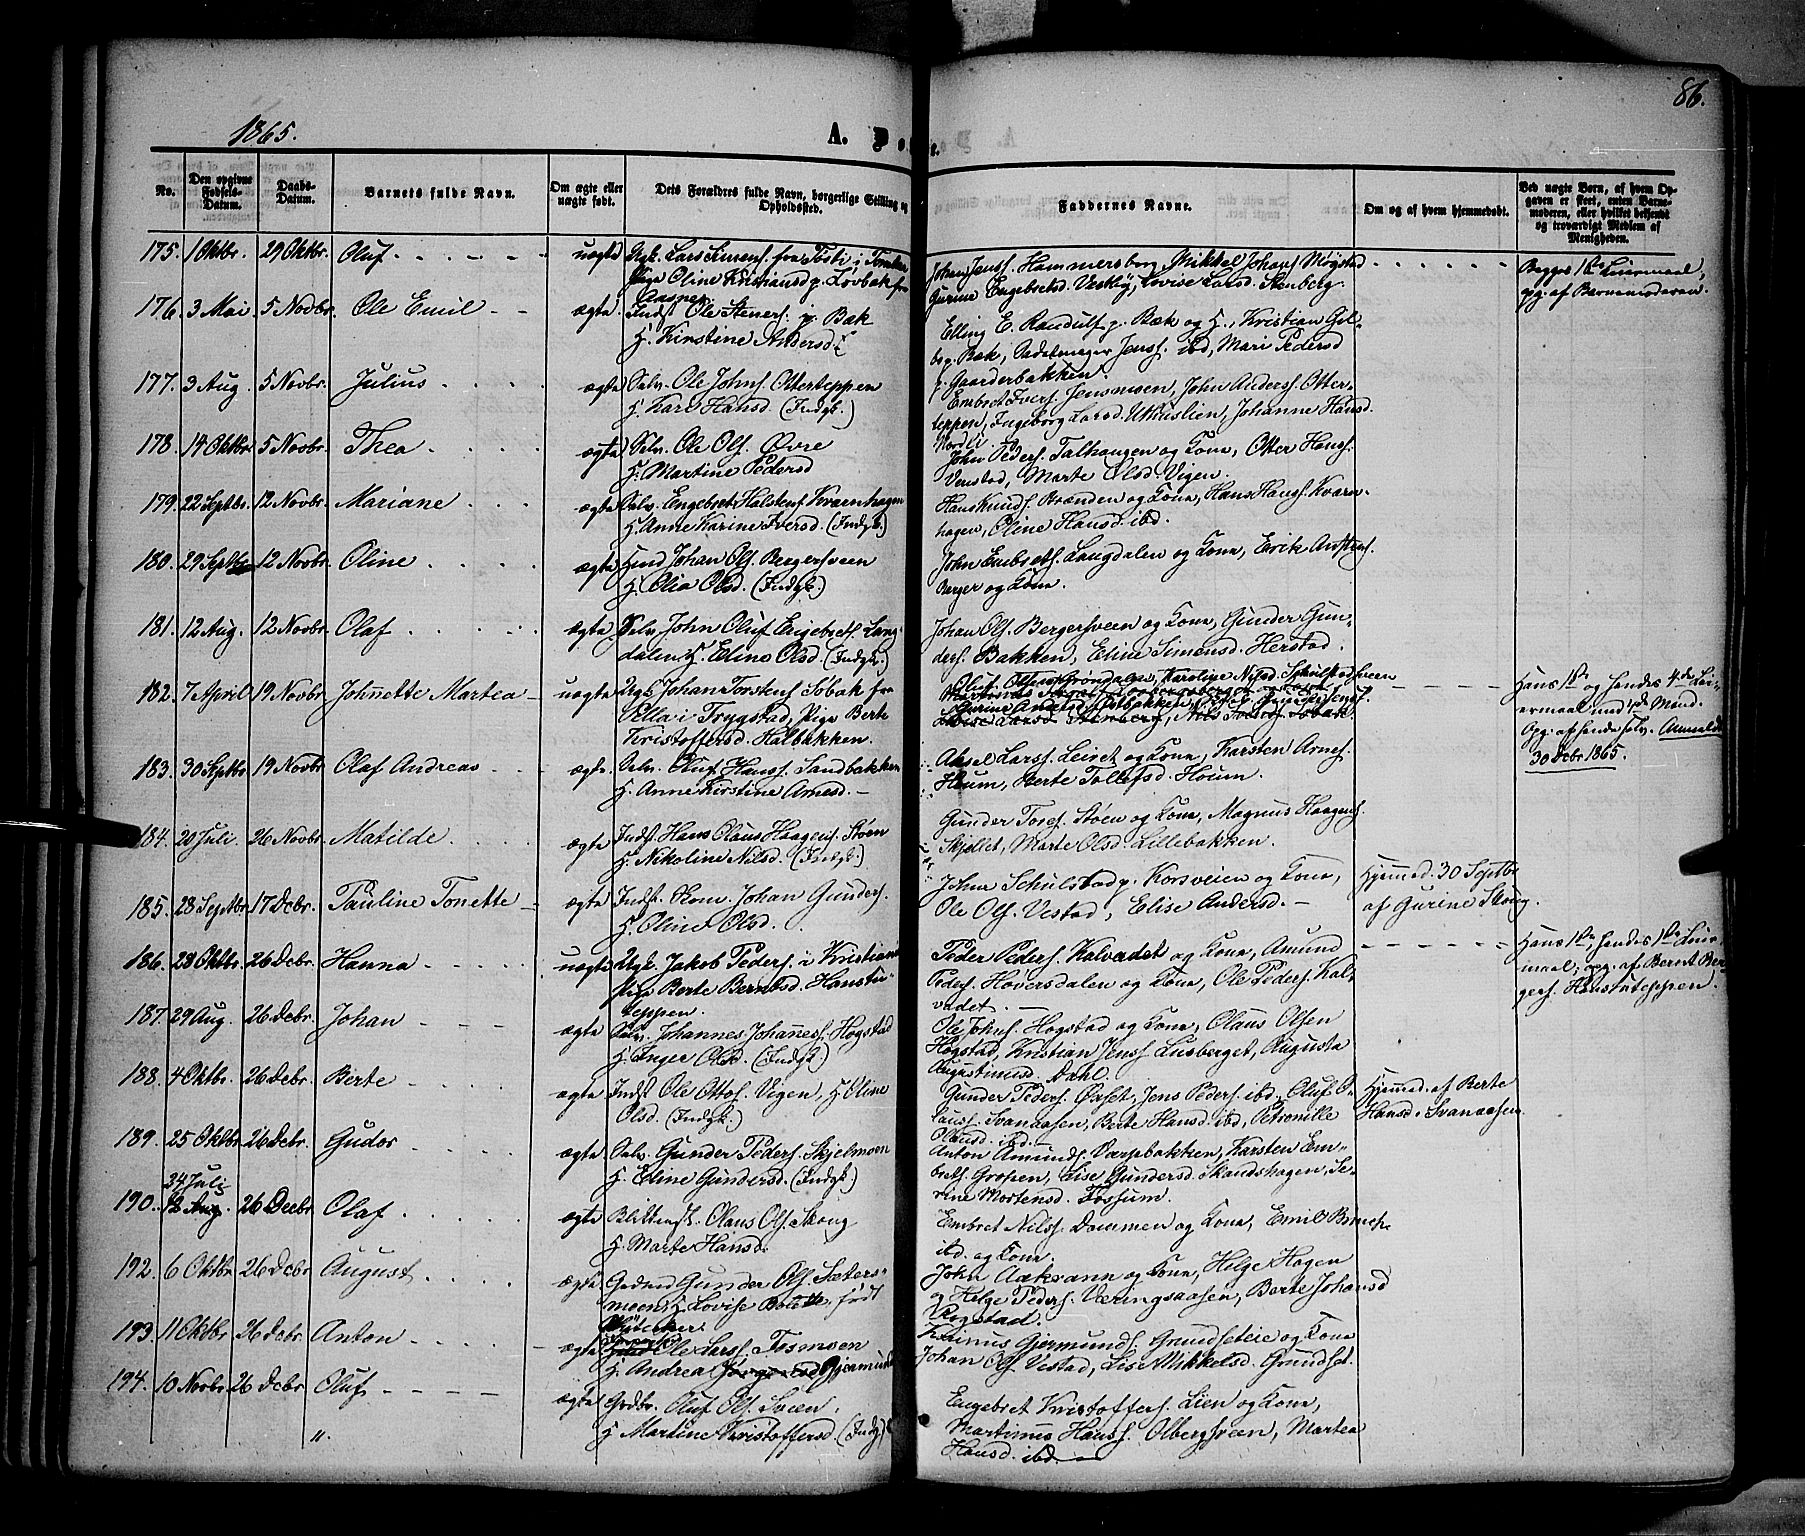 86.
1865.
A. P
No.
Den opgivne Fødsels-Datum.
Daabs-Datum.
Barnets fulde Navn.
Om ægte eller uægte født.
Dets Forældres fulde Navn, borgerlige Stilling og Opholdssted.
Faddernes Navne.
Om og af hvem hjemmedøbt.
Ved uægte Børn, af hvem Opgaven er skeet, enten Barnemoderen, eller hvilket betjendt og troværdigt Medlem af Menigheden.
175. 1 Oktbr. 29 Oktbr. Oluf uægte Ugk. Lars Simens. fra Tosti i
Pige Oline Kristiansd. p. Løvbak fra
Aasnes
Johan Jenss. Hammersborg, Mikkel Johans. Møystad
Gurine Engebretsd. Veskøy, Lovise Larsd. Stenberg
Begges 1ste Leiermaal,
opg. af Barnemoderen.
176. 3 Mai 5 Novbr. Ole Emil ægte Indst. Ole Steners. p. Bæk
H. Kirstine Andersd.
Elling E. Randulf p. Bæk og H., Kristian
p. Bæk, Sadelmager Jenss. ibd, Mari Pedersd
p. Gaarderbakken.
177. 3 Aug. 5 Novbr. Julius ægte Selv. Ole Johns. Otterteppen
H. Kari Hansd. (Indgk.)
Embret Ivers. Jensmoen, John Anders. Otter-
teppen, Ingeborg Larsd. Utkuslien, Johanne Hansd.
Nordli
178. 14 Oktbr. 5 Novbr. Thea ægte Selv. Ole Ols. Øvre
H. Martine Pedersd
John Peders. Talhaugen og Kona, Otter Hans.
Venstad, Marte Olsd. Vigen.
179. 22 Septbr. 12 Novbr. Mariane ægte Selv. Engebret Halstens. Kvarnhagen
H. Anne Karine Iversd. (Indgk.)
Hans Knuds. Brænden og Kona, Hans Hans. Kvarn-
hagen, Oline Hansd. ibd.
180. 29 Septbr. 12 Novbr. Oline ægte Husm. Johan Ols. Bergersveen
H. Olia Olsd. (Indgk.)
John Embrets. Langdalen og Kona, Erik Arnsens.
Berger og Kona.
181. 12 Aug. 12 Novbr. Olaf ægte Selv. John Oluf Engebrets. Lang-
dalen H. Eline Olsd. (Indgk.)
Johan Ols. Bergersveen og Kona, Gunder Gun-
ders. Bakken, Eline Simensd. Herstad.
182. 7 April 19 Novbr. Johnette Martea uægte Ugk. Johan Torstens. Søbak fra
Vella i Trygstad, Pige Berte
Kristoffersd. Halbakken.
Oluf Olsen Grøndalen, Karoline Nilsd. Schulstadsveen
Hans 1ste og hendes 4de Lei-
ermaal med 1ste Mand.
Opg. af hende selv. Anmeldt
30 Debr 1865.
183. 30 Septbr. 19 Novbr. Olaf Andreas ægte Selv. Oluf Hans. Sandbakken
H. Anne Kirstine Arnesd.
Aksel Larss. Leiret og Kona, Karsten Arnes.
Houm, Berte Tollefsd. Houm.
184. 20 Juli. 26 Novbr. Matilde ægte Indst. Hans Olaus Haagens. Støen
H. Nikoline Nilsd. (Indgk.)
Gunder Tores. Støen og Kona, Magnus Haagens.
Skjølict, Marte Olsd. Lillebakken.
185. 28 Septbr. 17 Debr. Pauline Tonette ægte Indst. Skom. Johan Gunders.
H. Oline Olsd.
Johan Schulstad p. Korsveien og Kona,
Ole Ols. Vestad, Elise Andersd.
Hjemmed. 30 Septbr
af Gurine Skoug.
186. 28 Oktbr. 26 Debr. Hanna uægte Ugk. Jakob Peders. i Kristiania
Pige Berte Berntsd. Hanstu-
teppen.
Peder Peders. Kalvedet og Kona, Amund
Peders. Hoversdalen og Kona, Ole Peders. Kal-
vadet
Hans 1ste, hendes 1ste Leier-
maal; opg. af Bernt Ber-
gers. Hanstuteppen.
187. 29 Aug. 26 Debr. Johan ægte Selv. Johannes Johanness. Hogstad
H. Inger Olsd. (Indgk.)
Ole Johns. Hogstad og Kona, Olaus Olsen
Hogstad, Kristian Jenss. Lusberget, Augusta
Augustinusd. Dahl.
188. 4 Oktbr. 26 Debr. Berte ægte Indst. Ole Ottos. Vigen, H. Oline
Olsd. (Indgk.)
Gunder Peders. Øvset, Jens Peders. ibd, Oluf O-
laus. Svanaasen, Berte Hansd. ibd, Petronille
Olausd. ibd.
Hjemmed. af Berte
Hansd. Svanaasen
189. 25 Oktbr. 26 Debr. Gudor ægte Selv. Gunder Peders. Skjelmoen
H. Eline Gundersd. (Indgk.)
Anton Amunds. Værpbakken, Karsten Em-
brets. Gropen, Lise Gundersd. Skandshagen, Se-
rine Mortensd. Fossum.
190. 24 Juli 12 Aug. 26 Decbr. Olaf ægte Bliktengst. Olaus Ols. Skoug
H. Marte Hansd.
Embret Nils. Dammen og Kona, Emil
ibd. og Kona.
192. 6 Oktbr. 26 Debr. August ægte Gunder Ols. Sæters-
moen, H. Lovise Bolette født
John Aakrann og Kona, Helge Hagen
og Helge Peders. Væringsaasen, Berte Johansd
Rogstad.
193. 11 Oktbr. 26 Debr. Anton ægte Ole Larss. Tosmoen
H. Andrea Gjermund
Karinus Gjermunds. Grundseteie og Kona
Johan Ols. Vestad, Lise Mikkelsd. Grundset.
194. 10 Novbr. 26 Debr. Oluf ægte Grdbr. Oluf Ols. Sveen.
H. Martine Kristoffersd. (Indgk.)
Engebret Kristoffers. Lien og Kona,
Martinus Hans. Olbergsveen, Martea
Hansd. ibd.